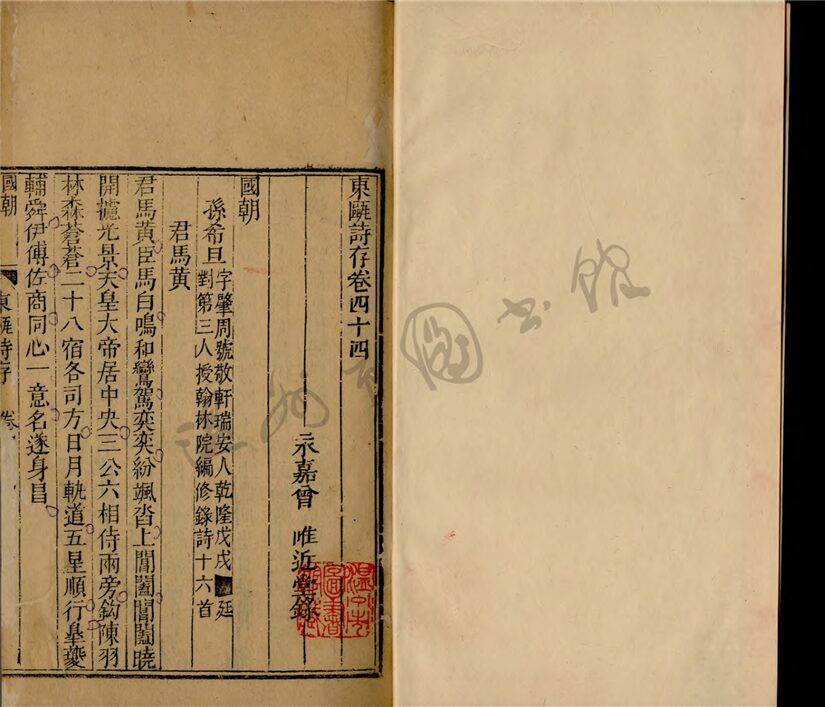 東甌詩存卷四十四
永嘉曾 唯近堂錄
國朝
孫希旦字肇周號敬軒瑞安人乾隆戊戌廷
對第三人授翰林院編修錄詩十六首
君馬黃
君馬黃臣馬白鳴和鸞駕奕奕紛颯沓上閶闔閶闔曉
開攄光景天皇大帝居中央三公六相侍兩旁鈎陳羽
林森蒼蒼二十八宿各司方日月軌道五星順行皋夔
輔舜伊傅佐商同心一意名遂身昌
國朝
東甌詩存 卷
圖書館